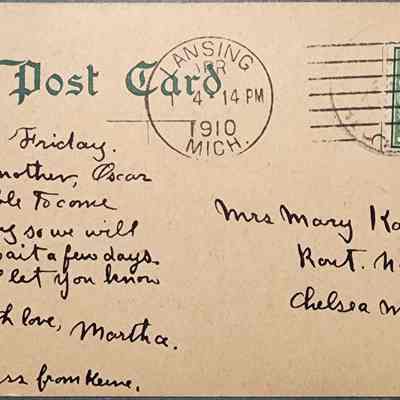 Post Card
LANSING
APR
1 4-14 PM
1910
MICH.
Friday.
mother, Oscar
to come
so we will
wait a few days
let you know
love, Martha.
from
Mrs Mary
Rout.
Chelsea